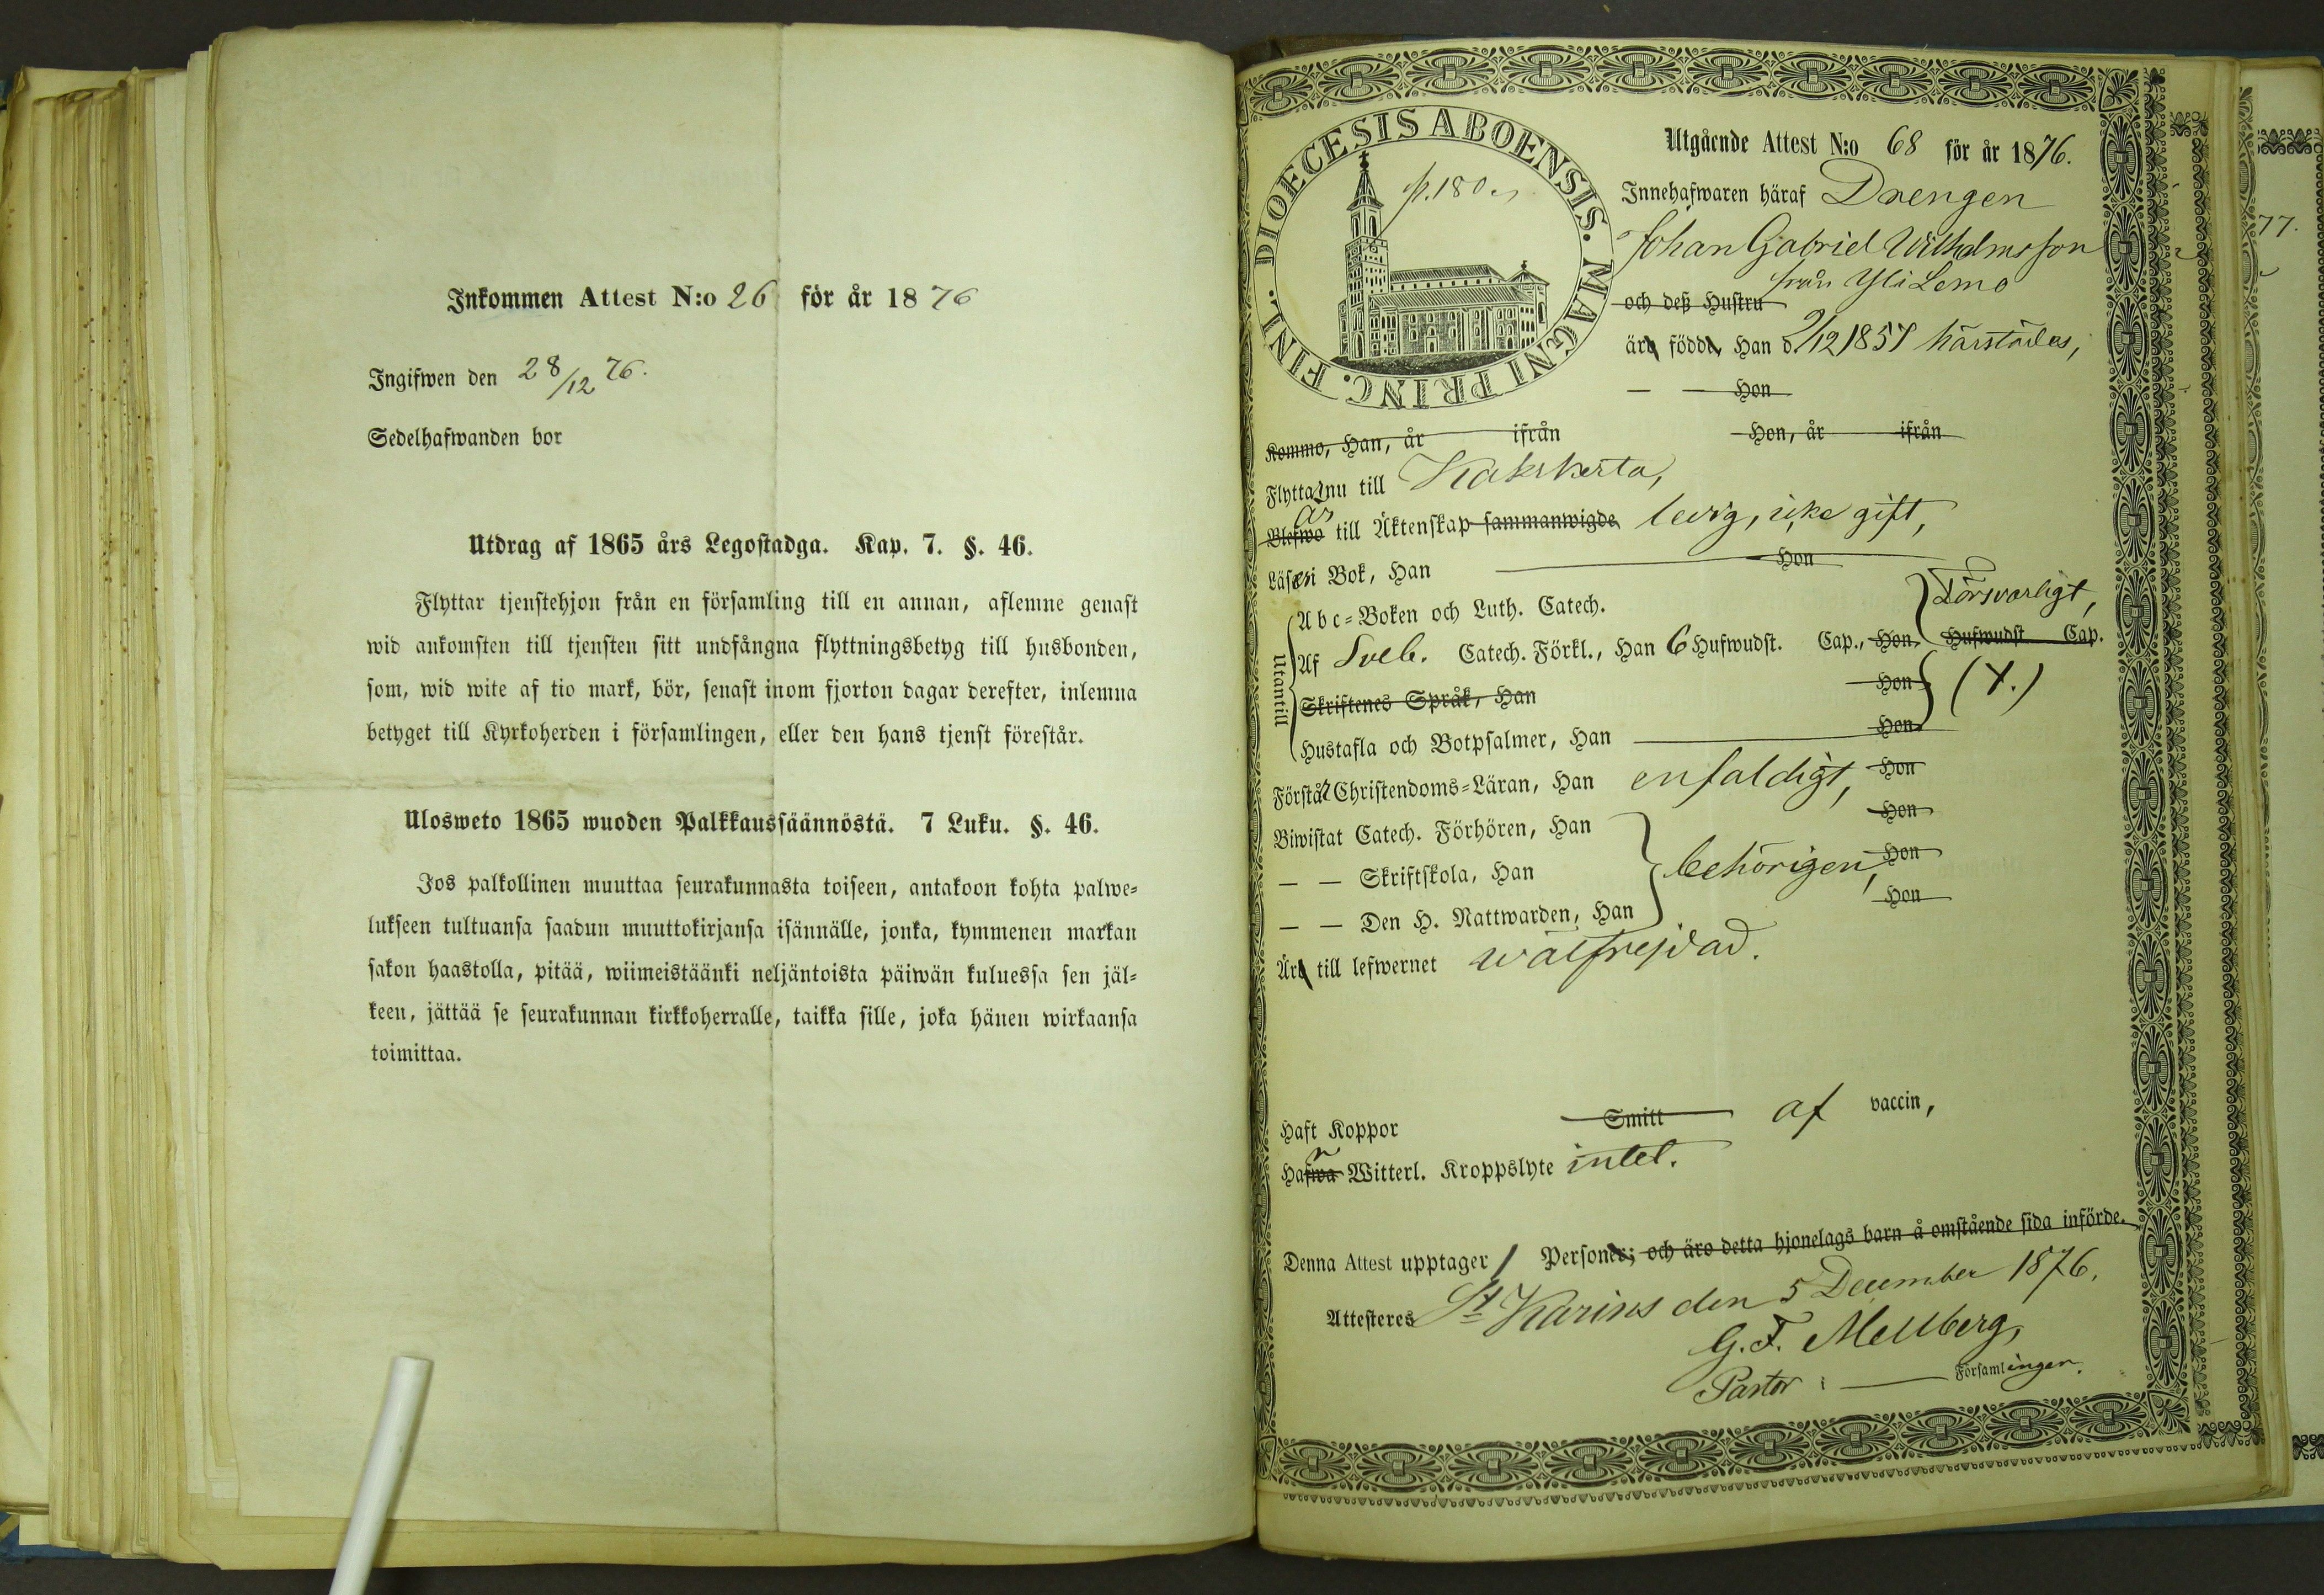 Inkommen Attest N:o 26 för år 1876
Ingifwen den 28/12 76.
Sedelhafwanden bor
Utdrag af 1865 års Legostadga. Kap. 7. §. 46.
Flyttar tjenstehjon från en församling till en annan, aflemne genast
wid ankomsten till tjensten sitt undfångna flyttningsbetyg till husbonden,
som, wid wite af tio mark, bör, senast inom fjorton dagar derefter, inlemna
betyget till Kyrkoherden i församlingen, eller den hans tjenst förestår.
Ulosweto 1865 wuoden Palkkaussäännöstä. 7 Luku. §. 46.
Jos palkollinen muuttaa seurakunnasta toiseen, antakoon kohta palwe-
lukseen tultuansa saadun muuttokirjansa isännälle, jonka, kymmenen markan
sakon haastolla, pitää, wiimeistäänki neljäntoista päiwän kuluessa sen jäl-
keen, jättää se seurakunnan kirkkoherralle, taikka sille, joka hänen wirkaansa
toimittaa.
DIOECESIS ABOENSIS. MAGNI PRINC. FINL.
p. 180
Utgående Attest N:o 68 för år 1876.
Innehafwaren häraf Drengen
Johan Gabriel Wilhelmsson
från Yli Lemo
och deß Hustru
äro födde, Han d. 2/12 1857 härstädes,
— Hon
Kommo, Han, år ifrån Hon, år ifrån
Flyttar nu till Kakskerta,
Blefwo är till Äktenskap sammanwigde ledig, icke gift,
Läser i Bok, Han Hon
Abc-Boken och Luth. Catech. Försvarligt,
Utantill
Af Sveb. Catech. Förkl., Han 6 Hufwudst. Cap., Hon, Hufwudst Cap.
Skriftenes Språk, Han Hon
Hustafla och Botpsalmer, Han Hon
Förstår Christendoms-Läran, Han enfaldigt, Hon
Biwistat Catech. Förhören, Han Hon
— — Skriftskola, Han behörigen, Hon
— — Den H. Nattwarden, Han Hon
Äro till lefwernet wälfrejdad.
Haft Koppor Smitt af vaccin,
Hafwa r Witterl. Kroppslyte intet.
Denna Attest upptager 1 Personer; och äro detta hjonelags barn å omstående sida införde.
Attesteres St Karins den 5 December 1876.
G. F. Mellberg,
Pastor i — Församlingen.
77.